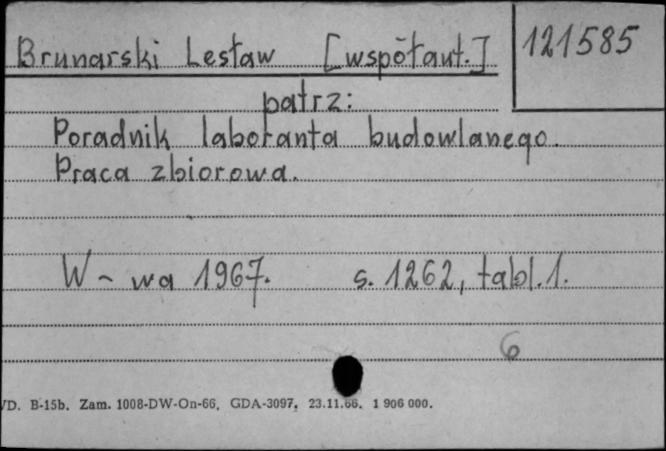 Brunarski Lesław [współaut.] 121585
patrz:
Poradnik laboranta budowlanego.
Praca zbiorowa.
W-wa 1967. s. 1262, tabl. 1.
6
VD. B-15b. Zam. 1008-DW-On-66, GDA-3097, 23.11.66. 1 906 000.